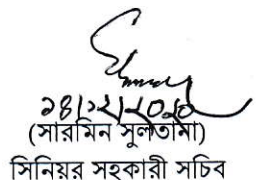 ১৪/১২/২০২০
(সারমিন সুলতানা)
সিনিয়র সহকারী সচিব